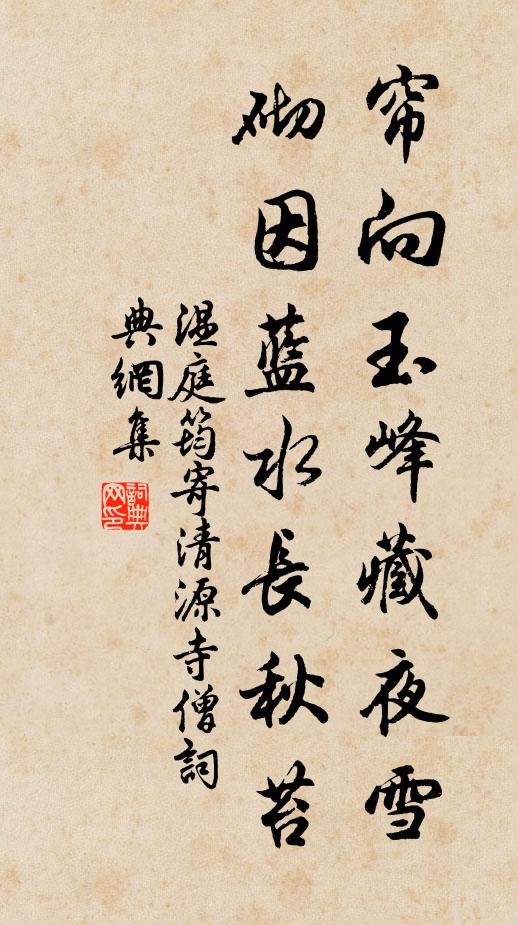 帘向玉峰藏夜雪
砌因藍水長秋苔
溫庭筠寄清源寺僧詞
典網集
詞典
网印